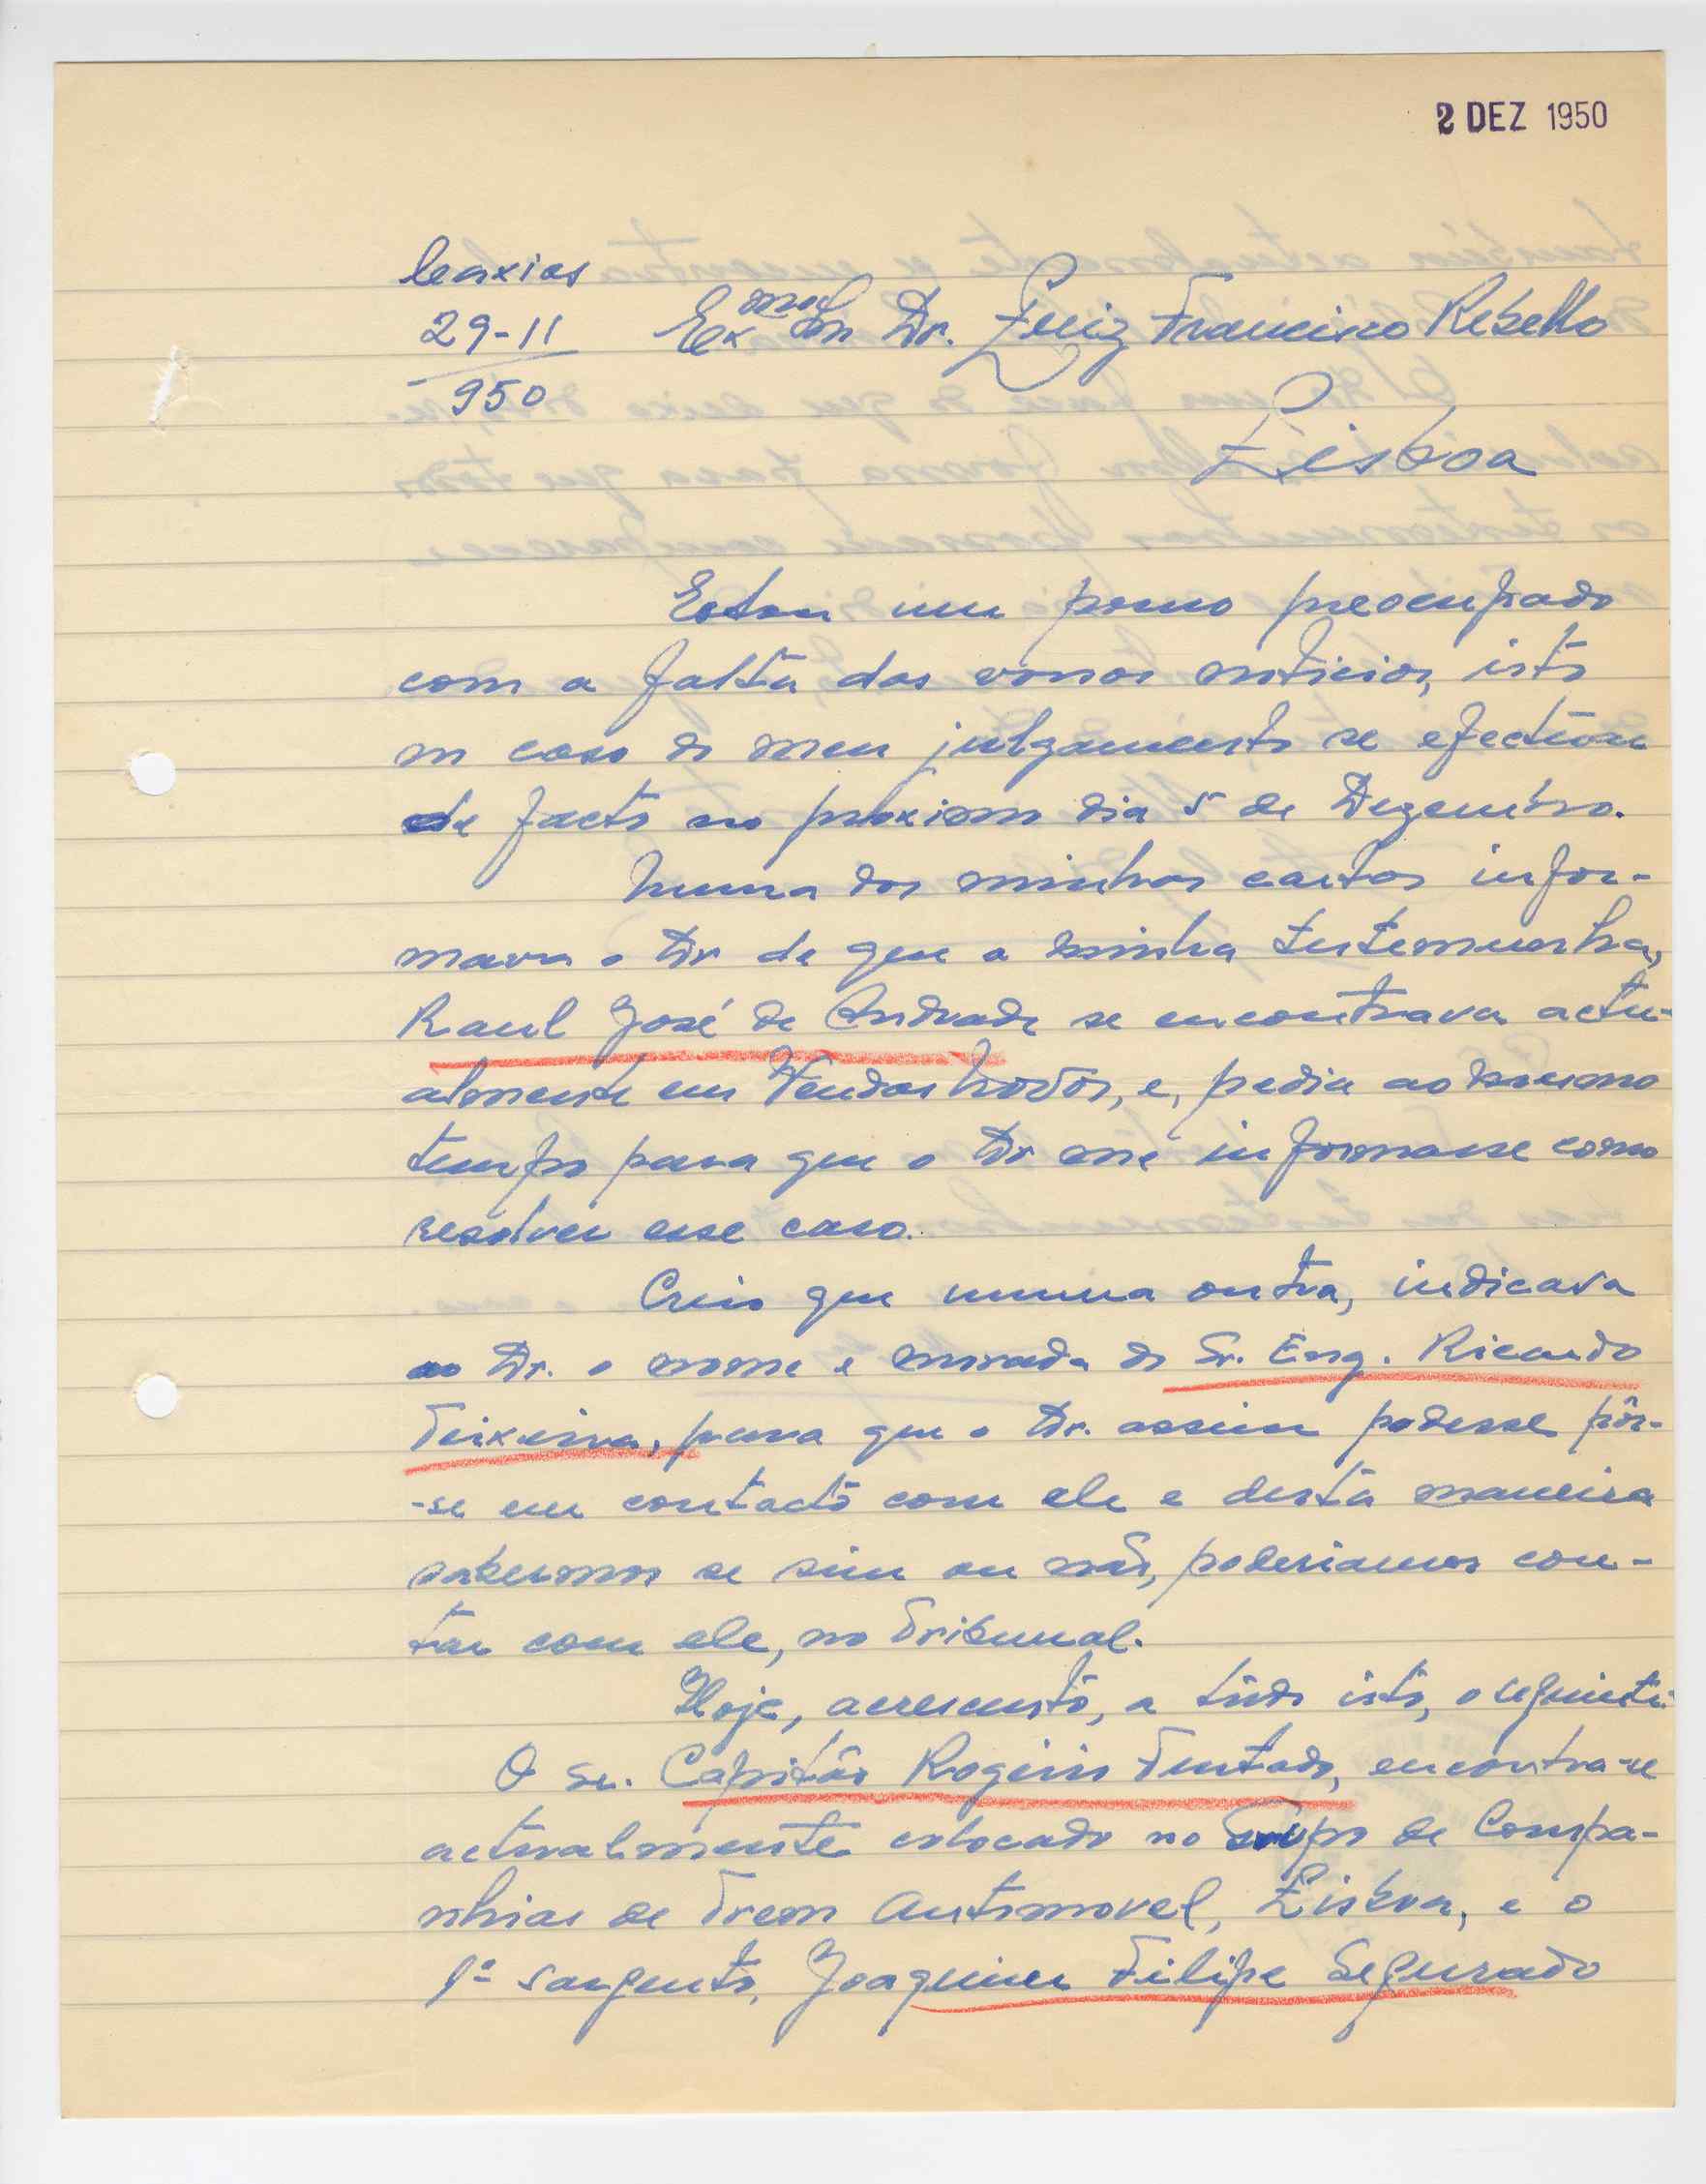 2 DEZ 1950
Caxias
29-11
950
Exmo Sr. Dr. Luiz Francisco Rebello
Lisboa
Estou um pouco preocupado
com a falta das vossas noticias, isto
no caso do meu julgamento se efectuar
de facto no proximo dia 5 de Dezembro.
Numa das minhas cartas infor-
mava o Dr de que a minha testemunha,
Raul José de Andrade se encontrava actu-
almente em Vendas Novas, e, pedia ao mesmo
tempo para que o Dr me informasse como
resolver esse caso.
Creio que numa outra, indicava
ao Dr. o nome e morada do Sr. Eng. Ricardo
Teixeira, para que o Dr. assim podesse pôr-
-se em contacto com ele e desta maneira
sabermos se sim ou não, poderiamos con-
tar com ele, no Tribunal.
Hoje, acrescento, a tudo isto, o seguinte:
O sr. Capitão Rogério Furtado, encontra-se
actualmente colocado no Grupo de Compa-
nhias de Trem Automovel, Lisboa, e o
1º sargento, Joaquim Filipe Segurado